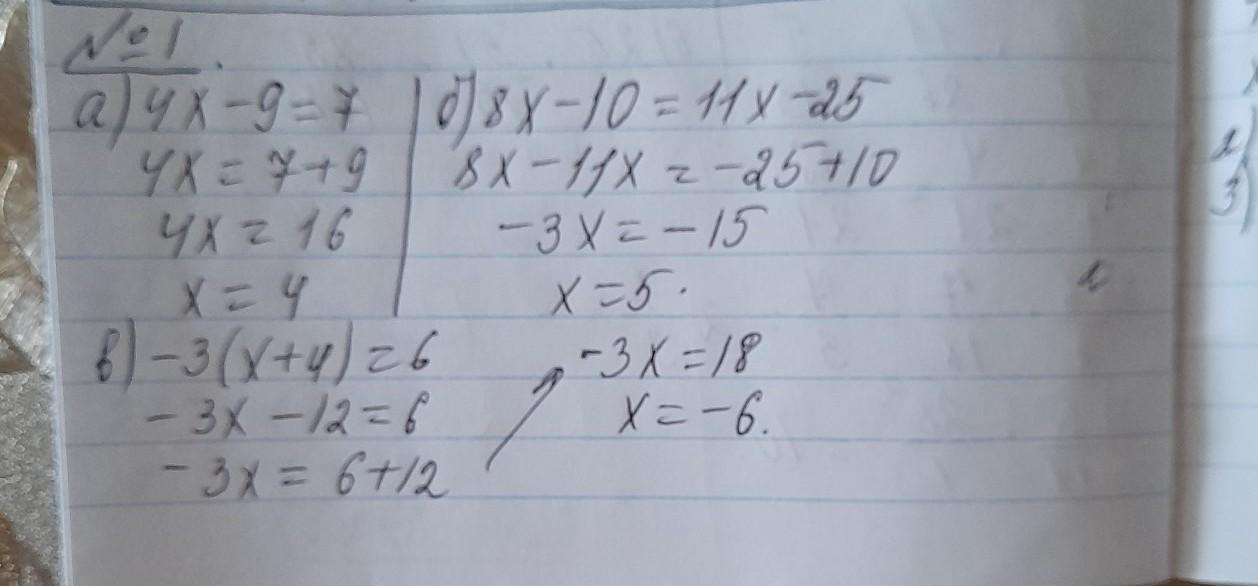 №1.
а) 4x-9=7
4x=7+9
4x=16
x=4
б) 8x-10=11x-25
8x-11x=-25+10
-3x=-15
x=5.
в) -3(x+4)=6
-3x-12=6
-3x=6+12
-3x=18
x=-6.
2)
3)